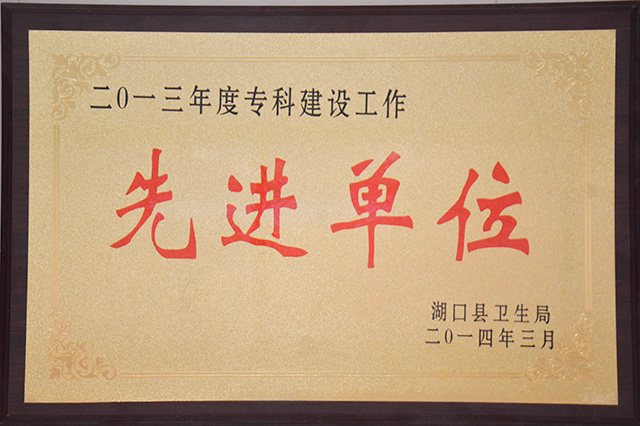 二〇一三年度专科建设工作
先进单位
湖口县卫生局
二〇一四年三月